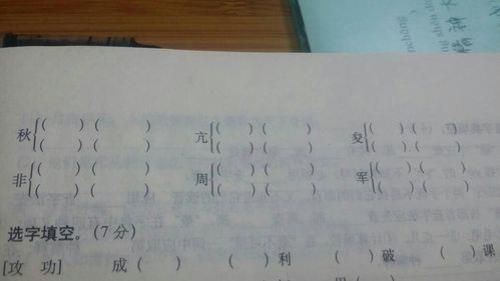 精神
秋{(  )(  ) 亢{(  )(  ) 夋{(  )(  )
(  )(  ) (  )(  ) (  )(  )
非{(  )(  ) 周{(  )(  ) 军{(  )(  )
(  )(  ) (  )(  ) (  )(  )
选字填空。(7分)
[攻 功] 成(  ) (  )利 (  )破 (  )课